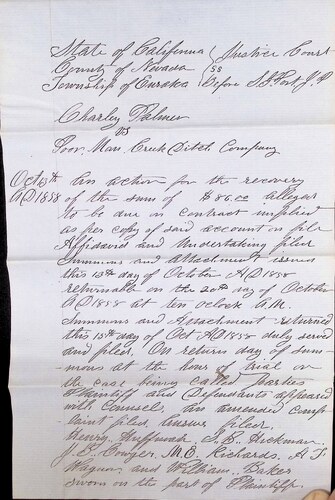 State of California } Justice Court
County of Nevada } ss
Township of Eureka } Before S. F. Port J. P
Charley Palmer
vs
Poor Man Creek Ditch Company
Oct 13th An action for the recovery
AD 1858 of the sum of $86.00 alleged
to be due on contract implied
as per copy of said account on file
Affidavid and Undertaking filed
Summons and attachment issued
this 13th day of October AD 1858
returnable on the 20th day of October
AD 1858 at ten oclock A.M.
Summons and Attachment returned
this 15th day of Oct AD 1858 duly served
and filed. On return day of Sum-
mons at the hour of trial on
the case being called parties
Plaintiff and Defendants appeared
with Counsel, an amended comp-
laint filed, answer filed.
Henry Huffnash, J. B. Hickman,
J. B. Cowger, M. C. Richards, A. T.
Wagner and William Baker
sworn on the part of Plaintiff.